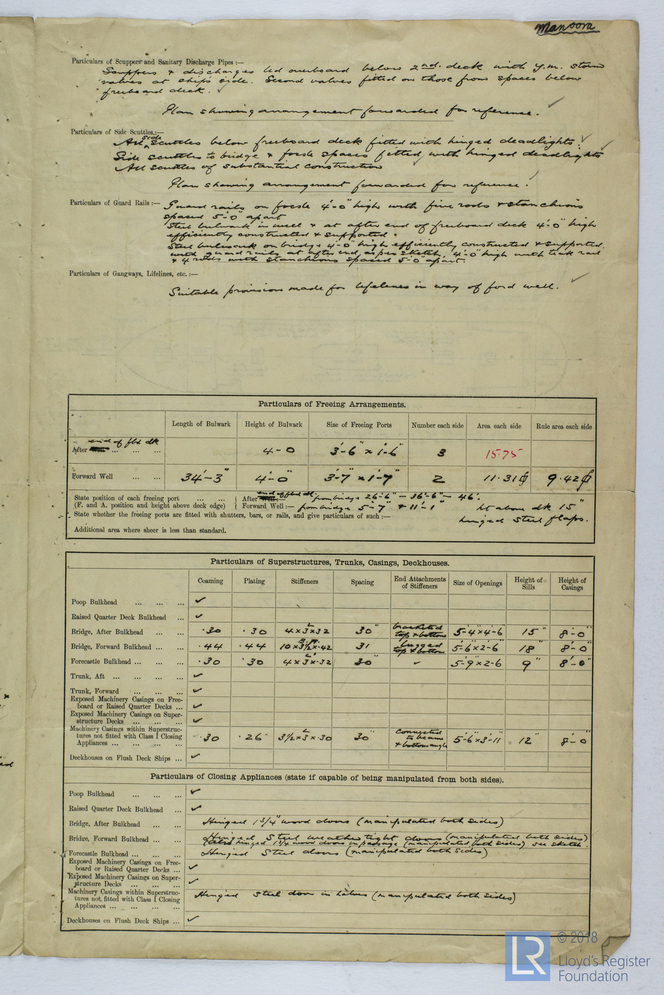 Manoora
Particulars of Scupper and Sanitary Discharge Pipes :—
Scuppers & discharges led overboard below 2nd deck with g.m. storm
valves at ships side. Second valves fitted on those from spaces below
freeboard deck. ✓
Plan showing arrangement forwarded for reference. ✓
Particulars of Side Scuttles :—
All side scuttles below freeboard deck fitted with hinged deadlights ✓
Side scuttles to bridge & focsle spaces fitted with hinged deadlights
All scuttles of substantial construction
Plan showing arrangement forwarded for reference. ✓
Particulars of Guard Rails :— Guard rails on focsle 4'-0" high with five rods & stanchions
spaced 5'-0" apart
Steel bulwark in well & at after end of freeboard deck 4'-0" high
efficiently constructed & supported.
Steel bulwark on bridge 4'-0" high efficiently constructed & supported
with guard rails at after end, as per sketch, 4'-0" high with teak rail
& 4 rods with stanchions spaced 5'-0" apart.
Particulars of Gangways, Lifelines, etc. :—
Suitable provision made for lifelines in way of ford well. ✓
Particulars of Freeing Arrangements.
Length of Bulwark Height of Bulwark Size of Freeing Ports Number each side Area each side Rule area each side
end of fbd dk
After ... ... 4-0 3'-6" x 1'-6" 3 15.75
Forward Well ... ... 34'-3" 4'-0" 3'-7" x 1'-7" 2 11.31 9.42
State position of each freeing port ... ... After end of fbd dk from bridge 26'-6" — 36'-6" — 46'.
(F. and A. position and height above deck edge) Forward Well :— from bridge 5'-7" & 11'-1" ht above dk 15"
State whether the freeing ports are fitted with shutters, bars, or rails, and give particulars of such :— hinged steel flaps.
Additional area where sheer is less than standard.
Particulars of Superstructures, Trunks, Casings, Deckhouses.
Coaming Plating Stiffeners Spacing End Attachments of Stiffeners Size of Openings Height of Sills Height of Casings
Poop Bulkhead ... ... ... ✓
Raised Quarter Deck Bulkhead ... ✓
Bridge, After Bulkhead ... ... .30 .30 4 x 3 x .32 30" bracketed top & bottom 5'-4" x 4'-6 15" 8'-0"
Bridge, Forward Bulkhead ... ... .44 .44 10 x 3½ x .42 31 lugged top & bottom 5'-6 x 2'-6" 18" 8'-0"
Forecastle Bulkhead ... ... .30 .30 4 x 3 x .32 30" ✓ 5'-9 x 2-6 9" 8'-0"
Trunk, Aft ... ... ... ✓
Trunk, Forward ... ... ... ✓
Exposed Machinery Casings on Free-
board or Raised Quarter Decks ... ✓
Exposed Machinery Casings on Super-
structure Decks ... ... ... ✓
Machinery Casings within Superstruc-
tures not fitted with Class 1 Closing
Appliances ... ... ... .30 .26 3½ x 3 x .30 30" connected to beams & bottom angle 5'-6 x 3'-11 12" 8'-0"
Deckhouses on Flush Deck Ships ... ✓
Particulars of Closing Appliances (state if capable of being manipulated from both sides).
Poop Bulkhead ... ... ... ✓
Raised Quarter Deck Bulkhead ... ✓
Bridge, After Bulkhead ... ... Hinged 1¾" wood doors (manipulated both sides)
Bridge, Forward Bulkhead ... ... Hinged Steel weather tight doors (manipulated both sides)
Also hinged 1¾ wood doors in passage (manipulated both sides) see sketch
Forecastle Bulkhead ... ... Hinged Steel doors (manipulated both sides)
Exposed Machinery Casings on Free-
board or Raised Quarter Decks ... ✓
Exposed Machinery Casings on Super-
structure Decks ... ... ... ✓
Machinery Casings within Superstruc-
tures not fitted with Class 1 Closing
Appliances ... ... ... Hinged Steel door in halves (manipulated both sides)
Deckhouses on Flush Deck Ships ... ✓
LR
© 2018
Lloyd's Register
Foundation